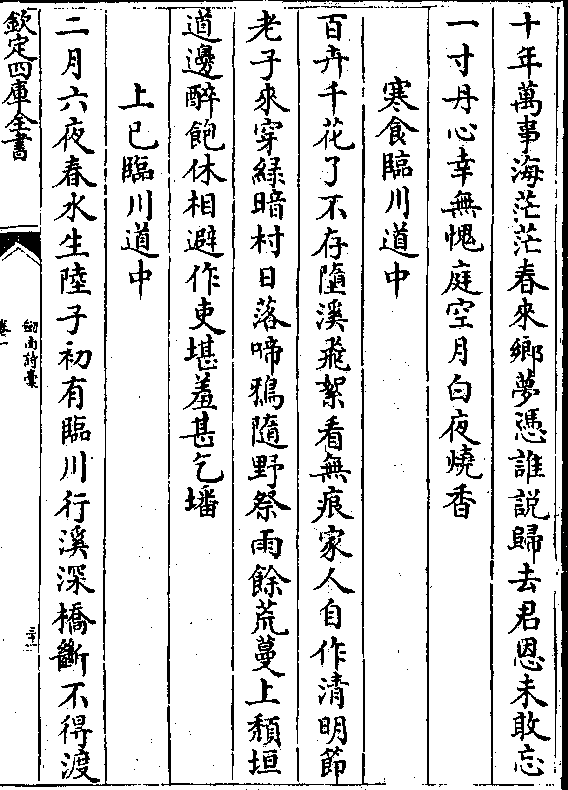 十年萬事海茫茫春來鄉夢憑誰説歸去君恩未敢忘
一寸丹心幸無愧庭空月白夜燒香
寒食臨川道中
百卉千花了不存墮溪飛絮看無痕家人自作清明節
老子來穿緑暗村日落啼鴉隨野祭雨餘荒蔓上頽垣
道邊醉飽休相避作吏堪羞甚乞墦
上巳臨川道中
二月六夜春水生陸子初有臨川行溪深橋斷不得渡
欽定四庫全書
劒南詩稾
卷一
三十一